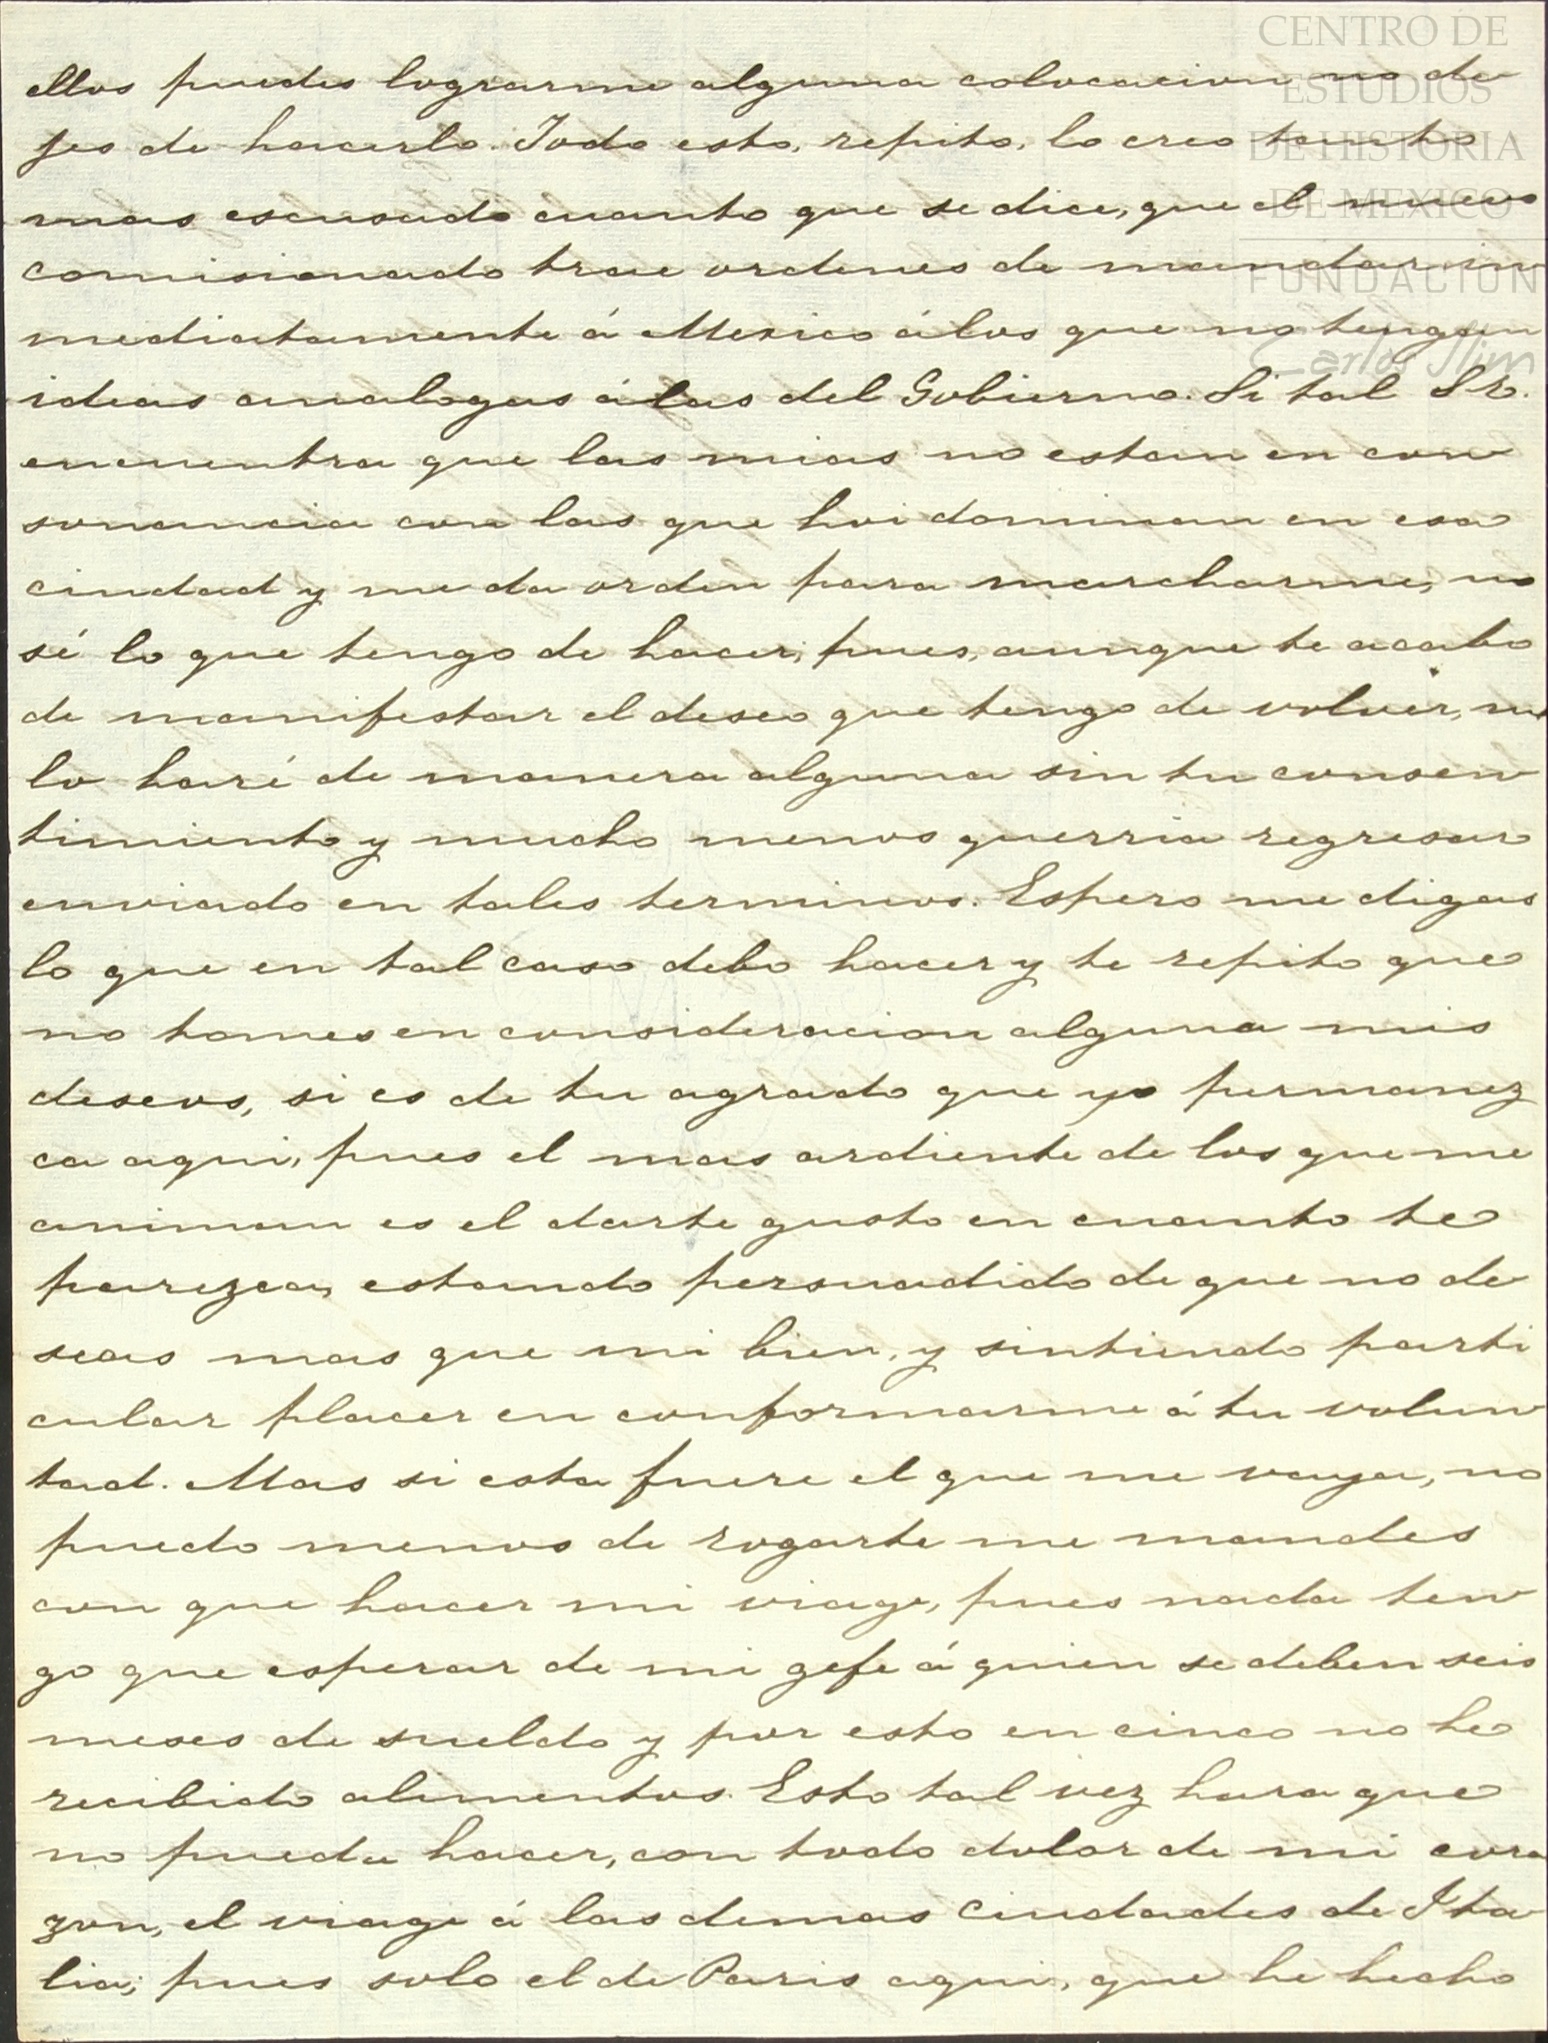 CENTRO DE
ESTUDIOS
DE HISTORIA
DE MEXICO
FUNDACION
Carlos Slim
ellos puedes lograrme alguna colocacion no de
jes de hacerlo. Todo esto, repito, lo creo tanto
mas escusado cuanto que se dice, que el nuevo
comisionado trae ordenes de mandar in
mediatamente á Mexico á los que no tengan
ideas analogas á las del Gobierno. Si tal Sr.
encuentra que las mias no estan en con
sonancia con las que hoi dominan en esa
ciudad y me da orden para marcharme, no
sé lo que tengo de hacer, pues, aunque te acabo
de manifestar el deseo que tengo de volver, no
lo haré de manera alguna sin tu consen
timiento y mucho menos querria regresar
enviado en tales terminos. Espero me digas
lo que en tal caso debo hacer y te repito que
no tomes en consideracion alguna mis
deseos, si es de tu agrado que yo permanez
ca aqui, pues el mas ardiente de los que me
animan es el darte gusto en cuanto te
parezca, estando persuadido de que no de
seas mas que mi bien, y sintiendo parti
cular placer en conformarme á tu volun
tad. Mas si esta fuere el que me vaya, no
puedo menos de rogarte me mandes
con que hacer mi viage, pues nada ten
go que esperar de mi gefe á quien se deben seis
meses de sueldo y por esto en cinco no he
recibido alimentos. Esto tal vez hara que
no pueda hacer, con todo dolor de mi cora
zon, el viage á las demas Ciudades de Ita
lia; pues solo el de Paris aqui, que he hecho